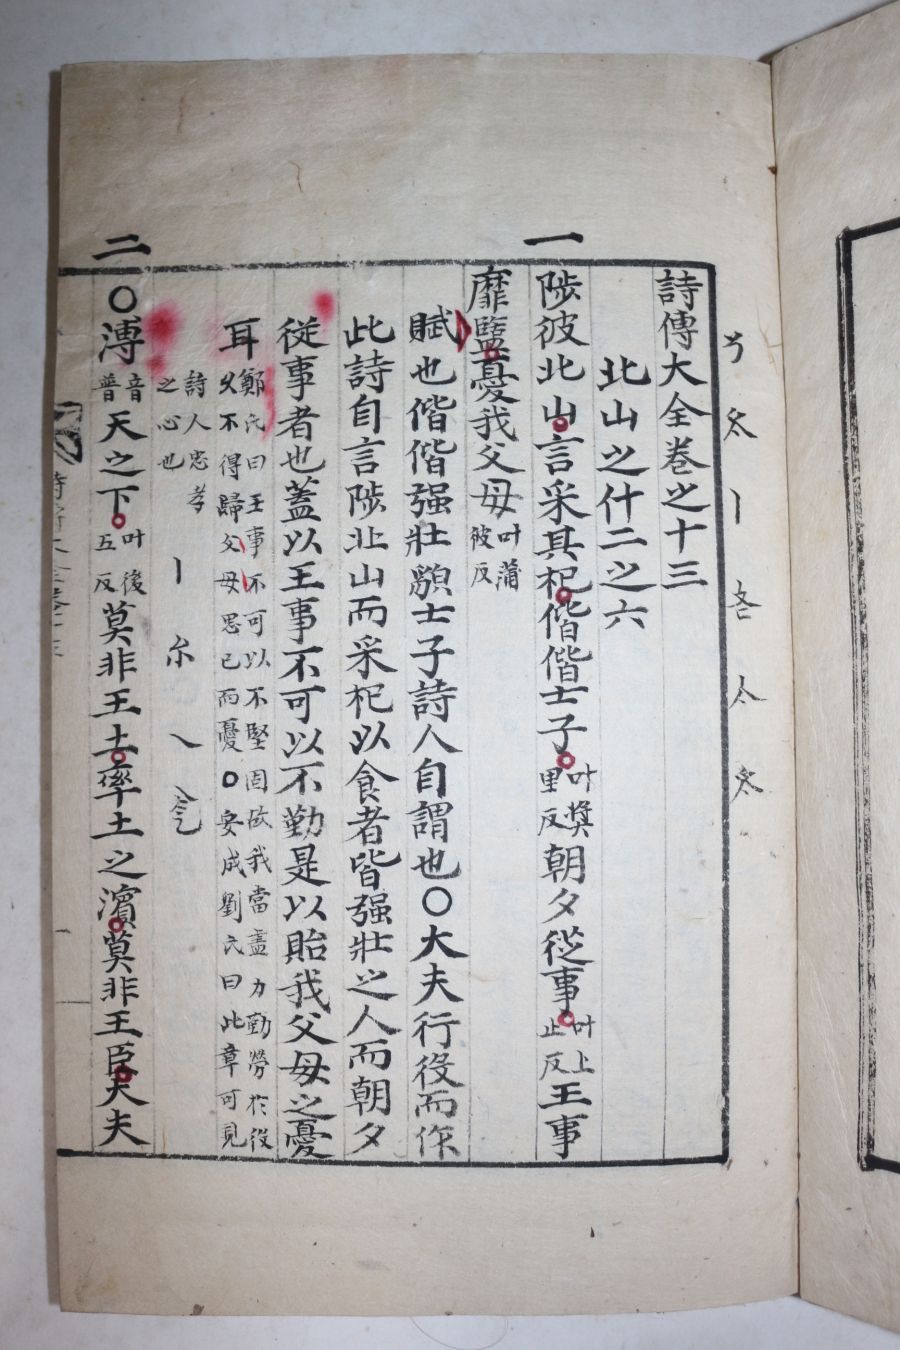 詩傳大全卷之十三
北山之什二之六
一
陟彼北山言采其杞偕偕士子叶奬里反朝夕從事叶上止反王事
靡盬憂我父母叶蒲彼反
賦也偕偕强壯貌士子詩人自謂也○大夫行役而作
此詩自言陟北山而采杞以食者皆强壯之人而朝夕
從事者也蓋以王事不可以不勤是以貽我父母之憂
耳鄭氏曰王事不可以不堅固故我當盡力勤勞於役
久不得歸父母思己而憂○安成劉氏曰此章可見
詩人忠孝
之心也
二
○溥音普天之下叶後五反莫非王土率土之濱莫非王臣大夫